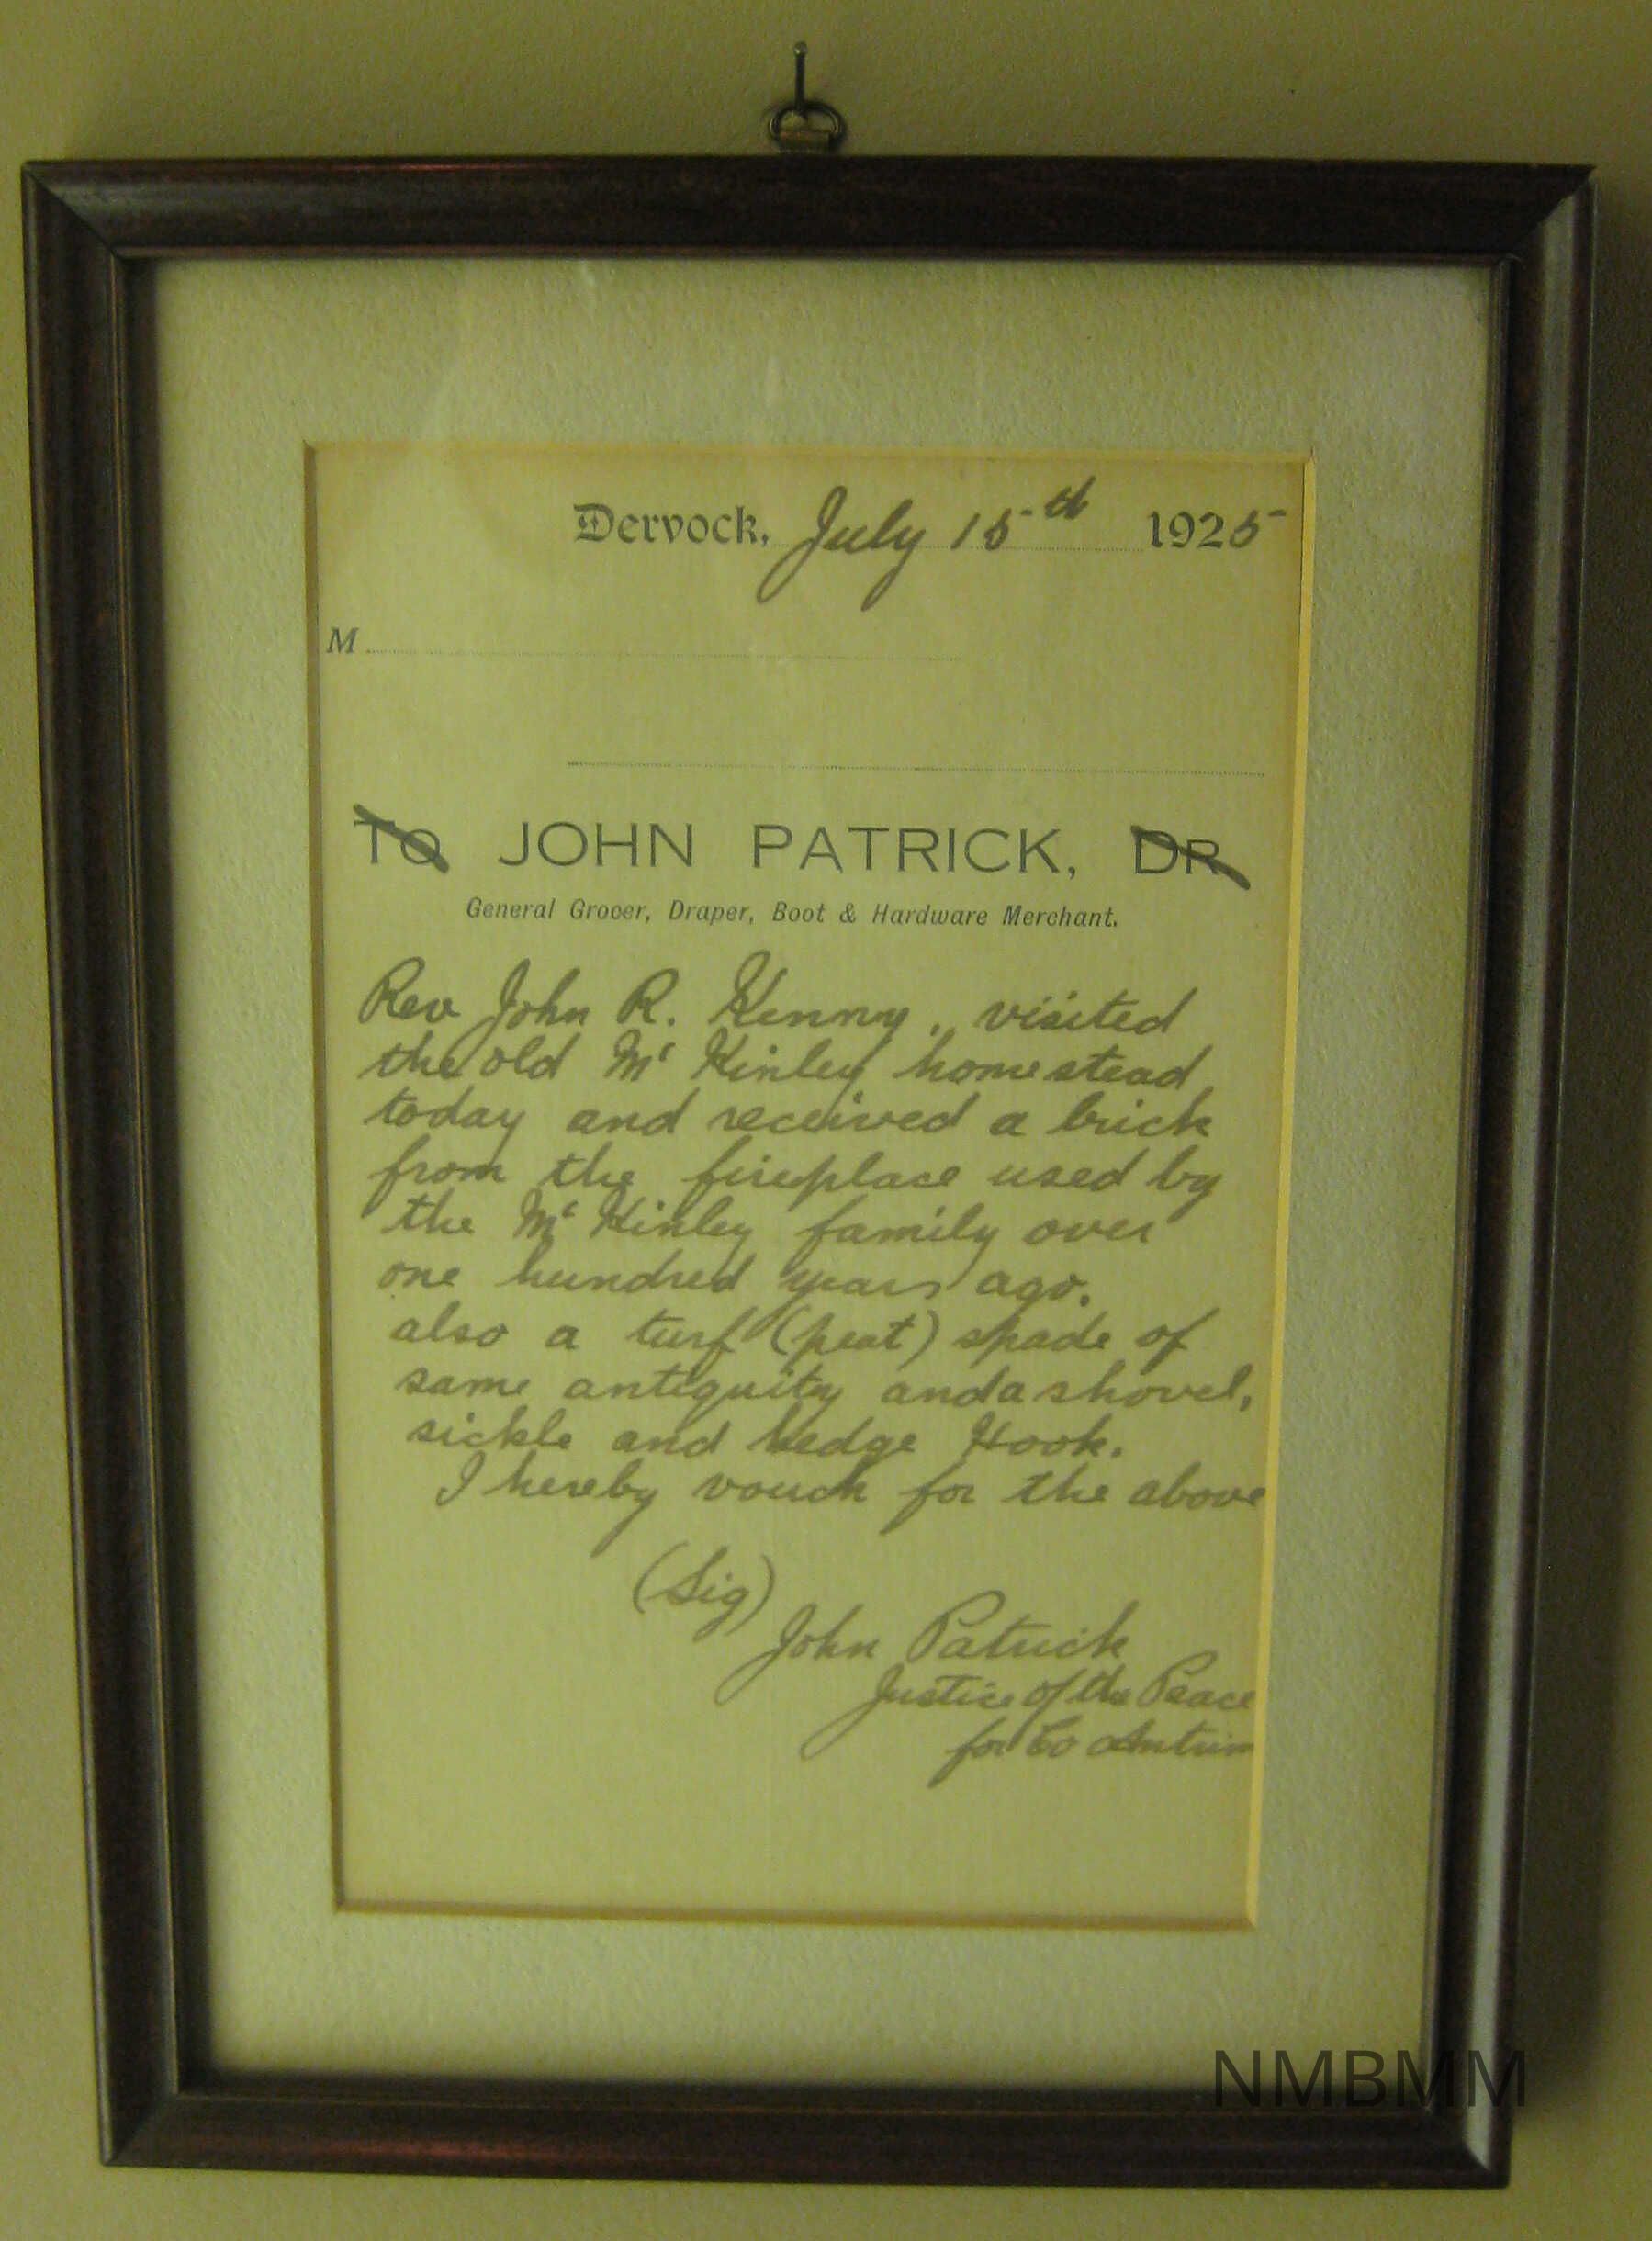 Dervock, July 15th 1925
M
To JOHN PATRICK, DR
General Grocer, Draper, Boot & Hardware Merchant.
Rev John R. Kenny, visited
the old Mc Kinley homestead
today and received a brick
from the fireplace used by
the Mc Kinley family over
one hundred years ago.
also a turf (peat) spade of
same antiquity and a shovel,
sickle and hedge Hook.
I hereby vouch for the above
(Sig)
John Patrick
Justice of the Peace
for Co Antrim
NMBMM